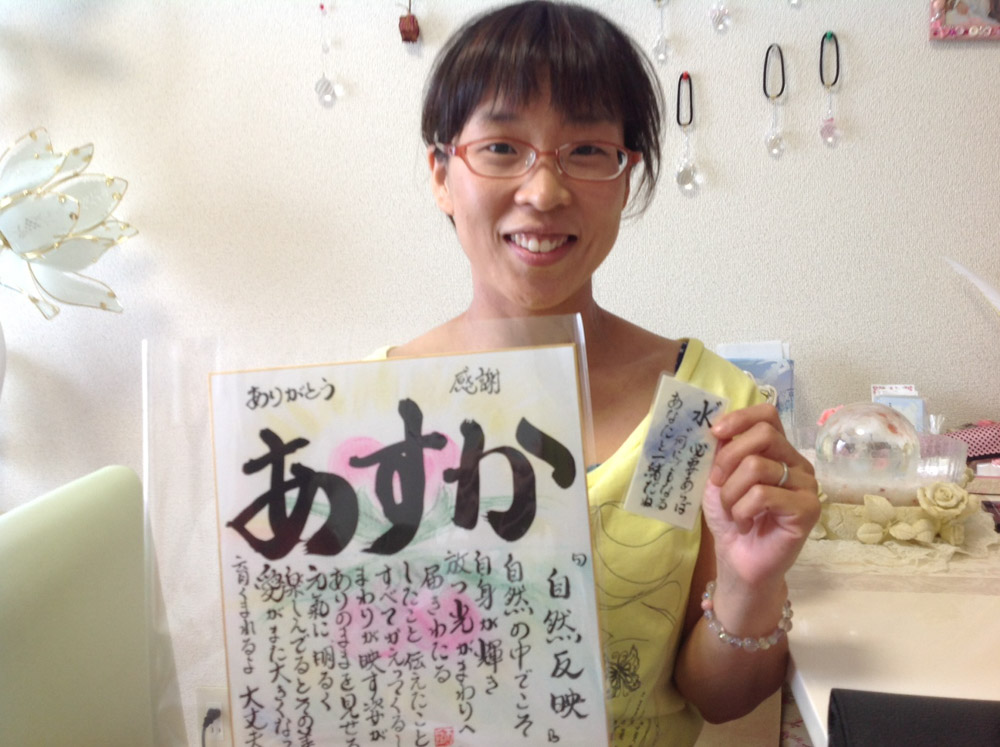 ありがとう
感謝
あすか
『自然反映』
自然の中でこそ
自身が輝き
放つ光がまわりへ
届きわたる
したこと伝えたこと
すべてがえってくるし
まわりが映す姿が
ありのままを見せる
元氣に明るく
楽しんでるところの
愛がまた大きくなっ
育くまれるよ 大丈夫
水
あなたと一緒だ